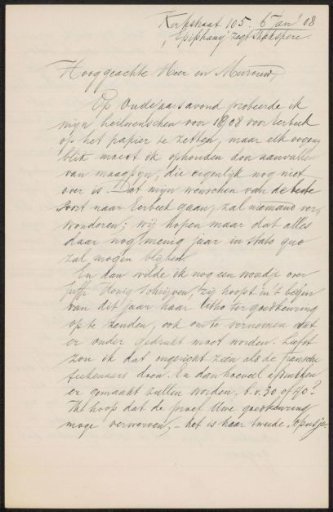 Kerkstraat 105. 6 Jan 08
"Epiphany" zegt Shakspere.
Hooggeachte Heer en Mevrouw,
Op Oudejaarsavond probeerde ik
mijn heilwenschen voor 1908 voor
op het papier te zetten, maar elk oogen
blik moest ik ophouden door aanvallen
van maagpijn, die eigenlijk nog niet
over is. Dat mijn wenschen van de beste
soort naar gaan, zal niemand ver-
wonderen; wij hopen maar dat alles
daar nog menig jaar in statu quo
zal mogen blijven.
En dan wilde ik nog een woordje over
Juffr. zij hoopt in 't begin
van dit jaar haar litho ter goedkeuring
op te zenden, ook om te vernemen wat
er onder gedrukt moet worden. Liefst
zou ik dat ingericht zien als de fransche
teekenaars doen. En dan hoeveel afdrukken
er gemaakt zullen worden, b.v. 30 of 40?
Ik hoop dat de proef Uwe goedkeuring
moge verwerven, – het is haar tweede